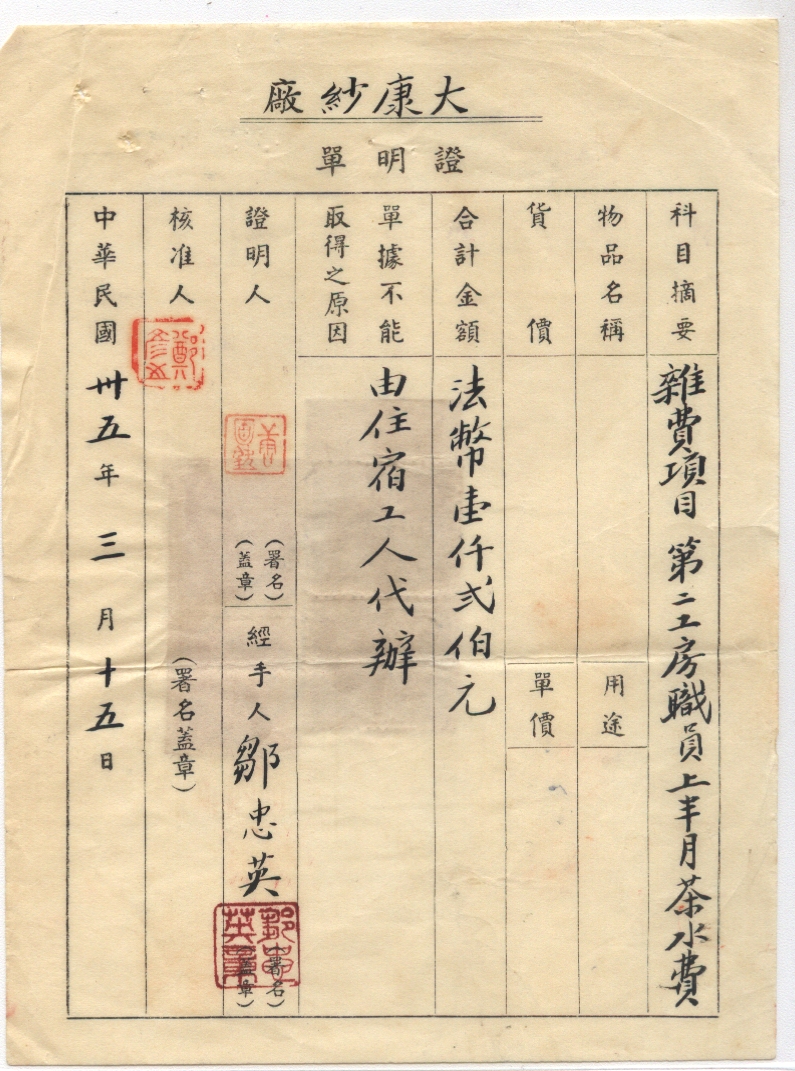 大康紗廠
證明單
科目摘要 雜費項目 第二工房職員上半月茶水費
物品名稱
用途
貨價
單價
合計金額 法幣壹仟弍伯元
單據不能
取得之原因
由住宿工人代辦
證明人
(署名
蓋章)
經手人 鄒忠英
(署名
蓋章)
鄒忠
英章
核准人
(署名蓋章)
中華民國卅五年三月十五日